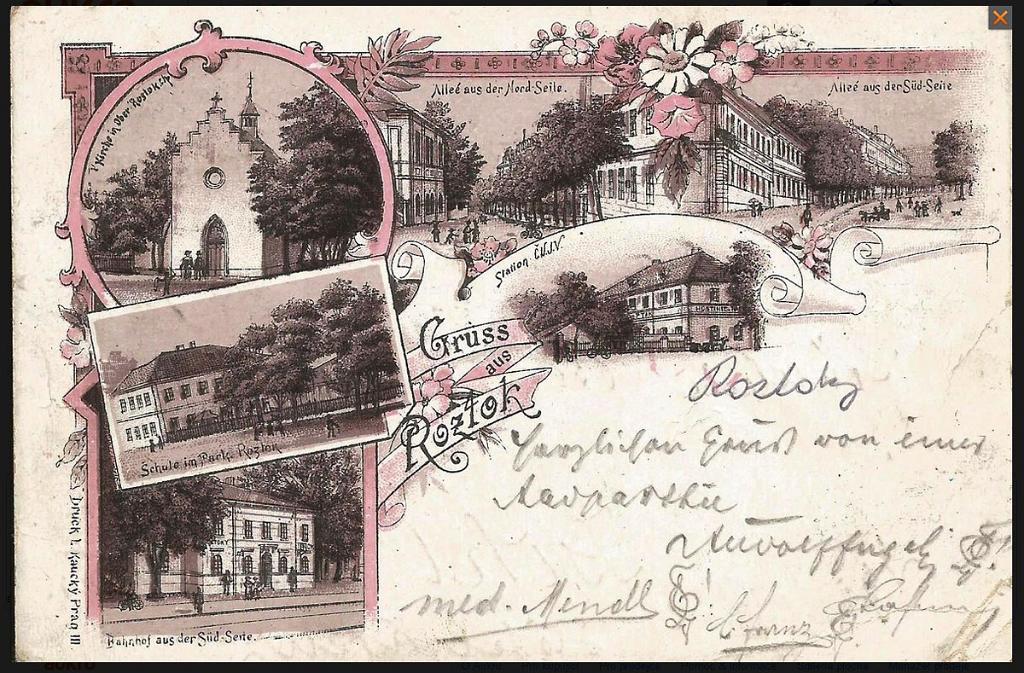 Kirche in Ober-Roztok
Alleé aus der Nord-Seite.
Alleé aus der Süd-Seite
Station Č.U.J.V.
Gruss
aus
Roztok
Schule im Park Roztok
Bahnhof aus der Süd-Seite.
Druck L. Kaucky Prag III
Roztoky
Herzlichen Gruß von einer
Radparthie
med. Mendl
Franz